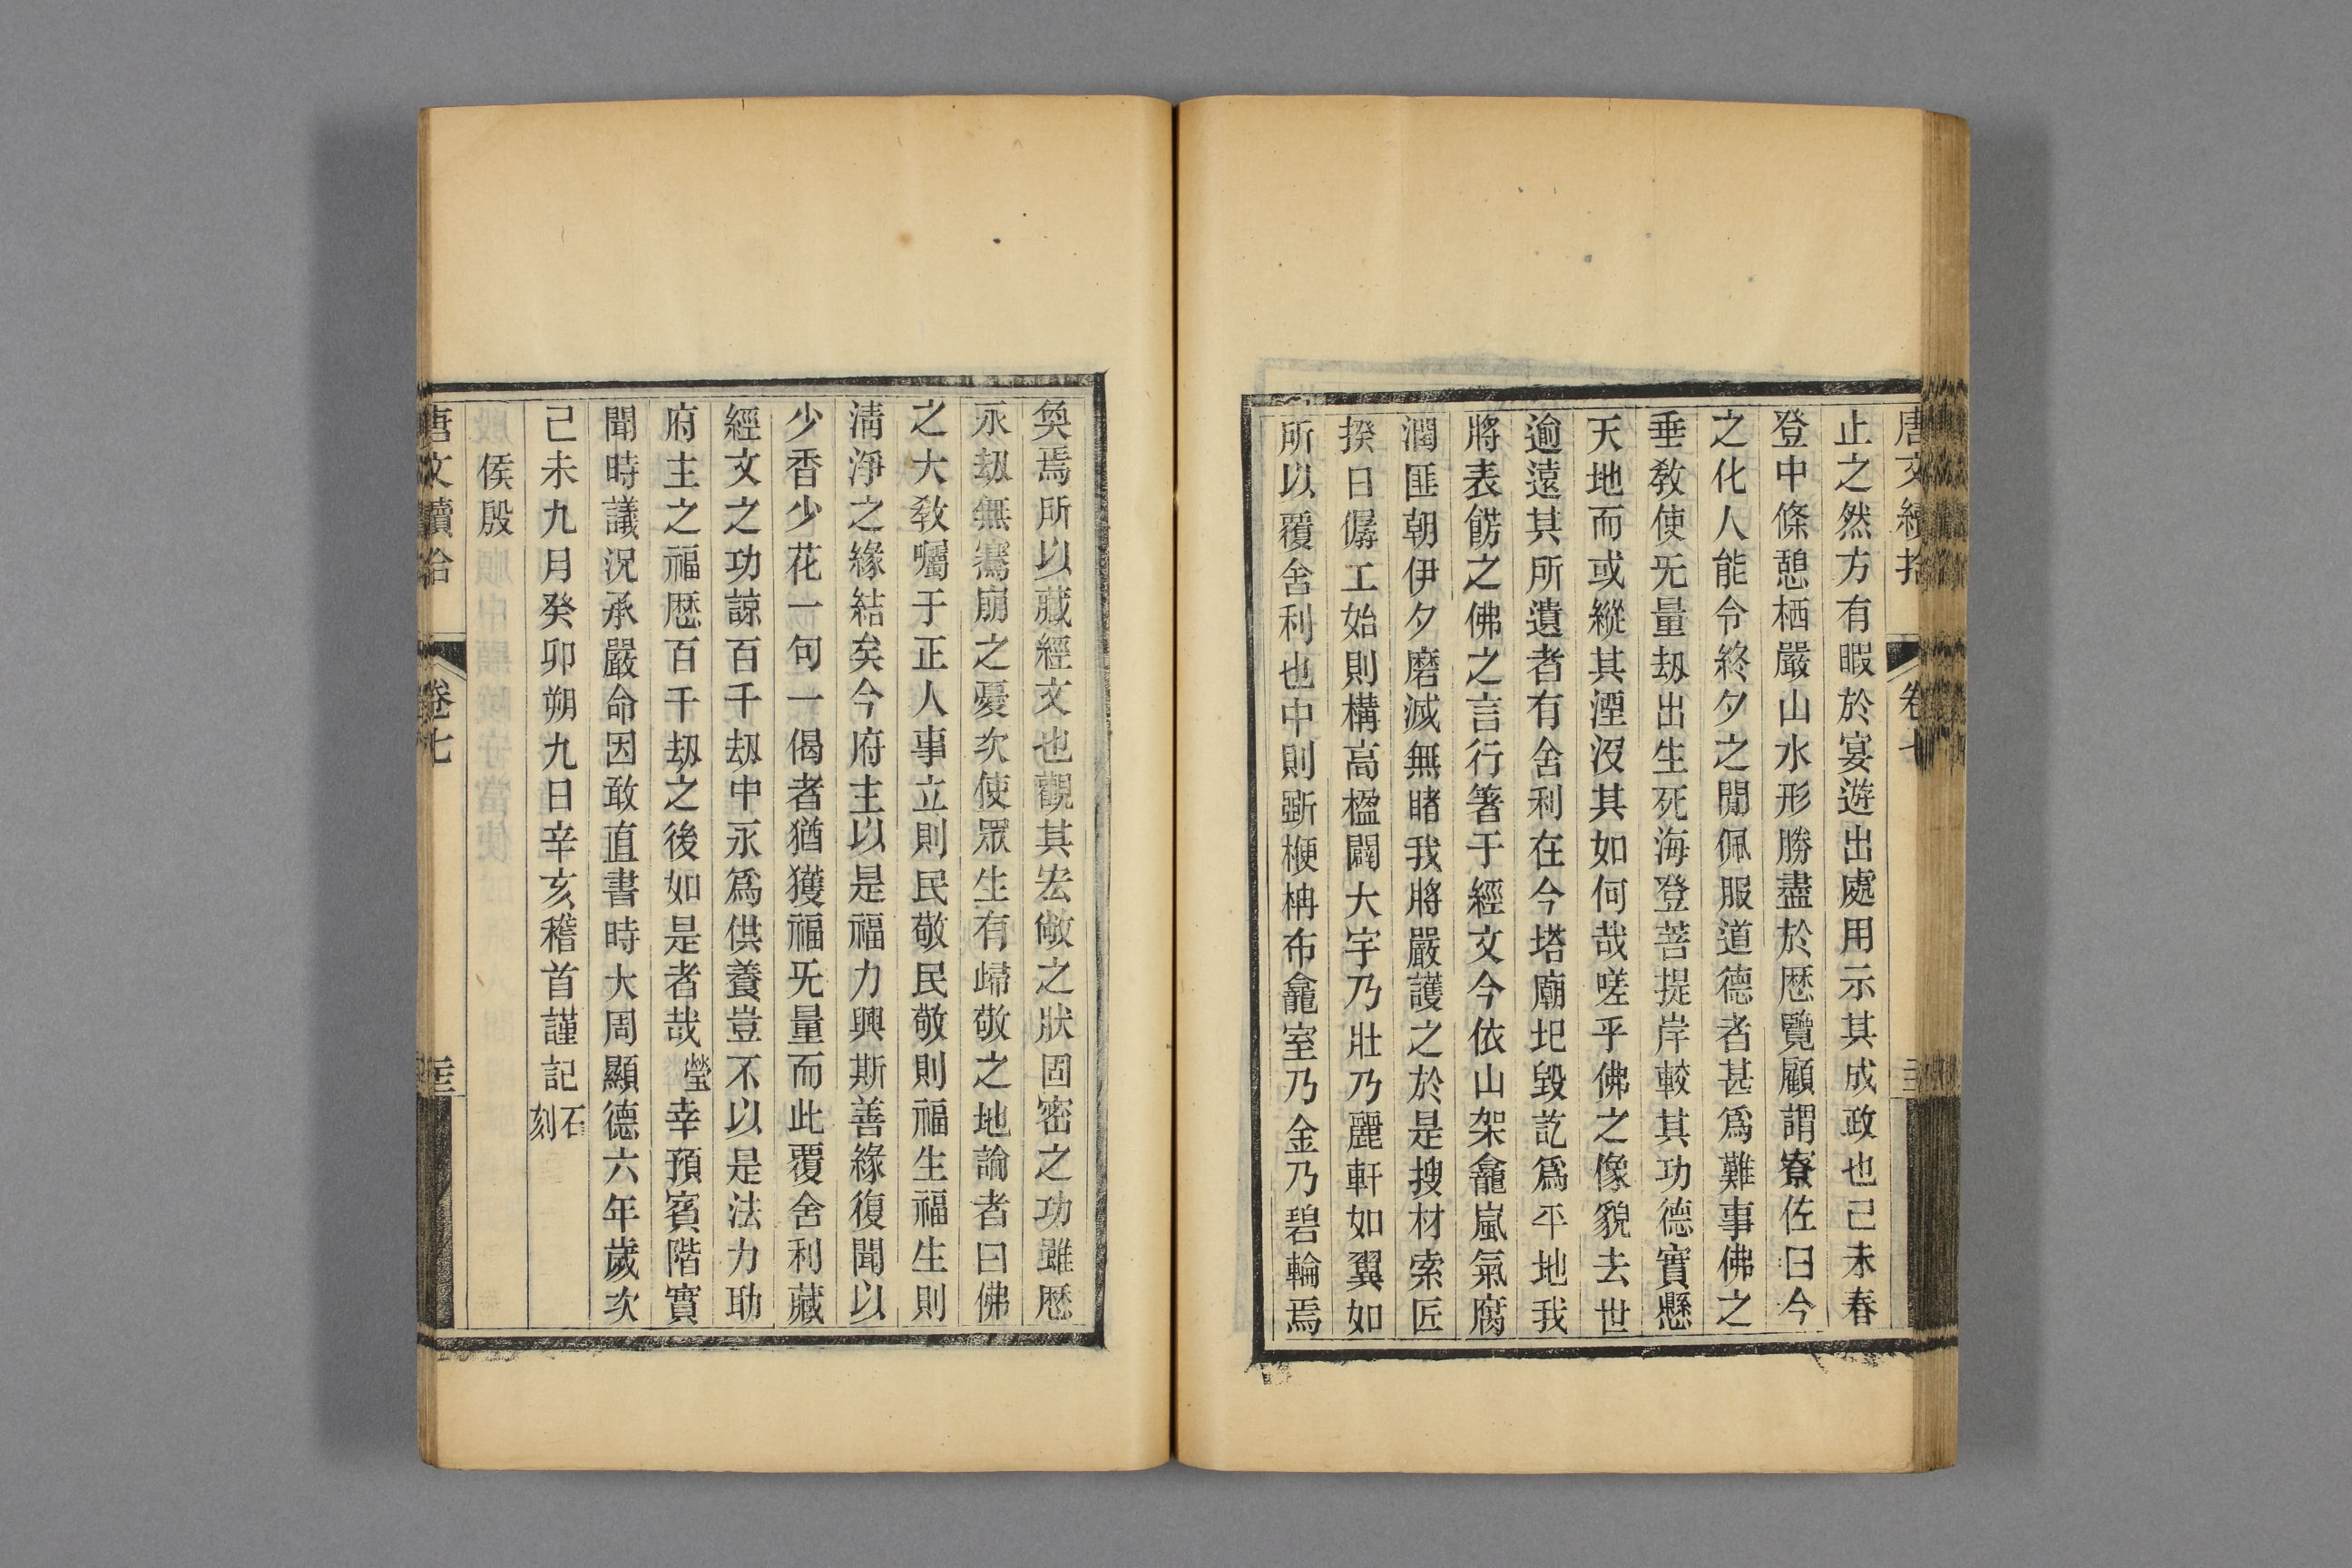 唐文續拾 卷七
止之然方有暇於宴遊出處用示其成政也己未春
登中條憩栖嚴山水形勝盡於歷覽顧謂寮佐曰今
之化人能令終夕之閒佩服道德者甚爲難事佛之
垂敎使旡量刼出生死海登菩提岸較其功德實懸
天地而或縱其湮沒其如何哉嗟乎佛之像貌去世
逾遠其所遺者有舍利在今塔廟圯毀訖爲平地我
將表餝之佛之言行箸于經文今依山架龕嵐氣腐
潤匪朝伊夕磨滅無睹我將嚴護之於是搜材索匠
揆日僝工始則構高楹闢大宇乃壯乃麗軒如翼如
所以覆舍利也中則斲楩枏布龕室乃金乃碧輪焉
奐焉所以藏經文也觀其宏敞之狀固密之功雖歷
永刼無騫崩之憂次使眾生有歸敬之地論者曰佛
之大敎囑于正人事立則民敬民敬則福生福生則
淸淨之緣結矣今府主以是福力興斯善緣復聞以
少香少花一句一偈者猶獲福旡量而此覆舍利藏
經文之功諒百千刼中永爲供養豈不以是法力助
府主之福歷百千刼之後如是者哉瑩幸預賓階實
聞時議況承嚴命因敢直書時大周顯德六年歲次
己未九月癸卯朔九日辛亥稽首謹記石刻
侯殷
唐文續拾 卷七